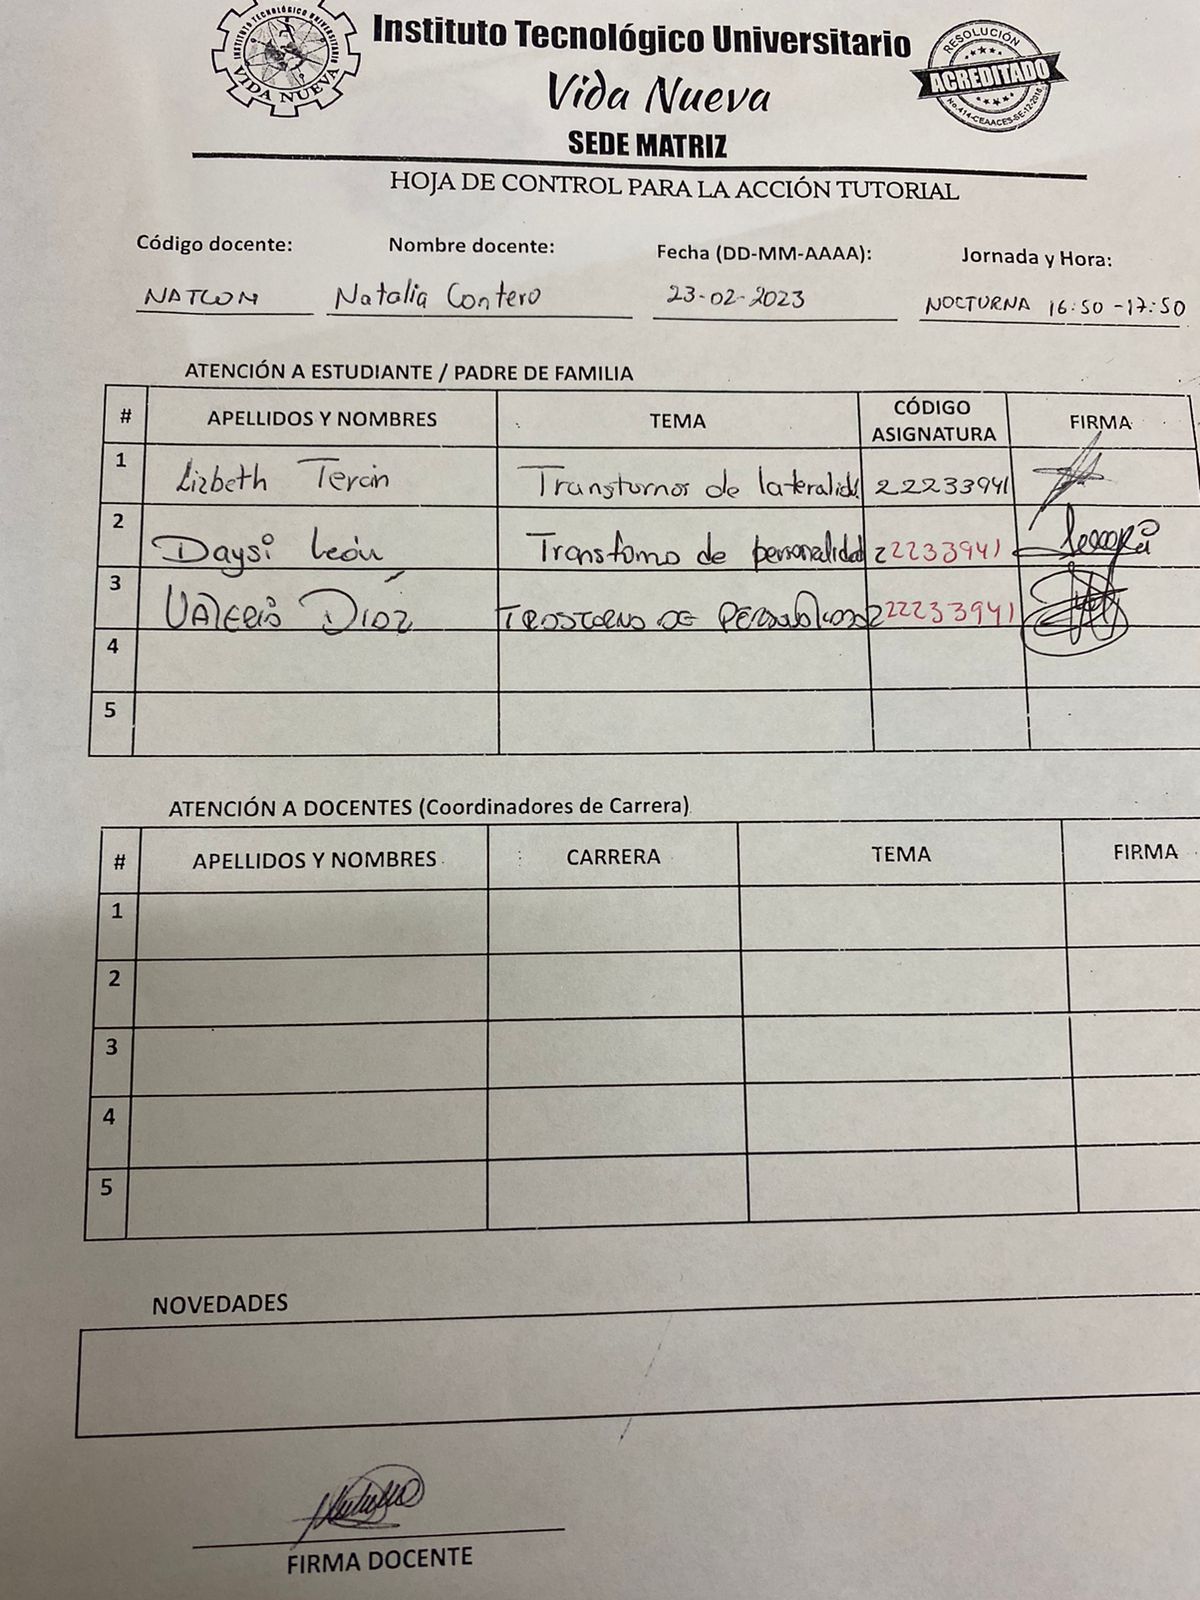 INSTITUTO TECNOLÓGICO UNIVERSITARIO
VIDA NUEVA
Instituto Tecnológico Universitario
Vida Nueva
SEDE MATRIZ
RESOLUCIÓN
ACREDITADO
No.414-CEAACES-SE-12-2016
HOJA DE CONTROL PARA LA ACCIÓN TUTORIAL
Código docente: Nombre docente: Fecha (DD-MM-AAAA): Jornada y Hora:
NATCON Natalia Contero 23-02-2023 NOCTURNA 16:50 -17:50
ATENCIÓN A ESTUDIANTE / PADRE DE FAMILIA
# APELLIDOS Y NOMBRES TEMA CÓDIGO ASIGNATURA FIRMA
1 Lizbeth Terán Transtornos de lateralidad 22233941
2 Daysi León Transtorno de personalidad 22233941
3 Valeria Díaz Trastorno de personalidad 22233941
4
5
ATENCIÓN A DOCENTES (Coordinadores de Carrera)
# APELLIDOS Y NOMBRES CARRERA TEMA FIRMA
1
2
3
4
5
NOVEDADES
FIRMA DOCENTE